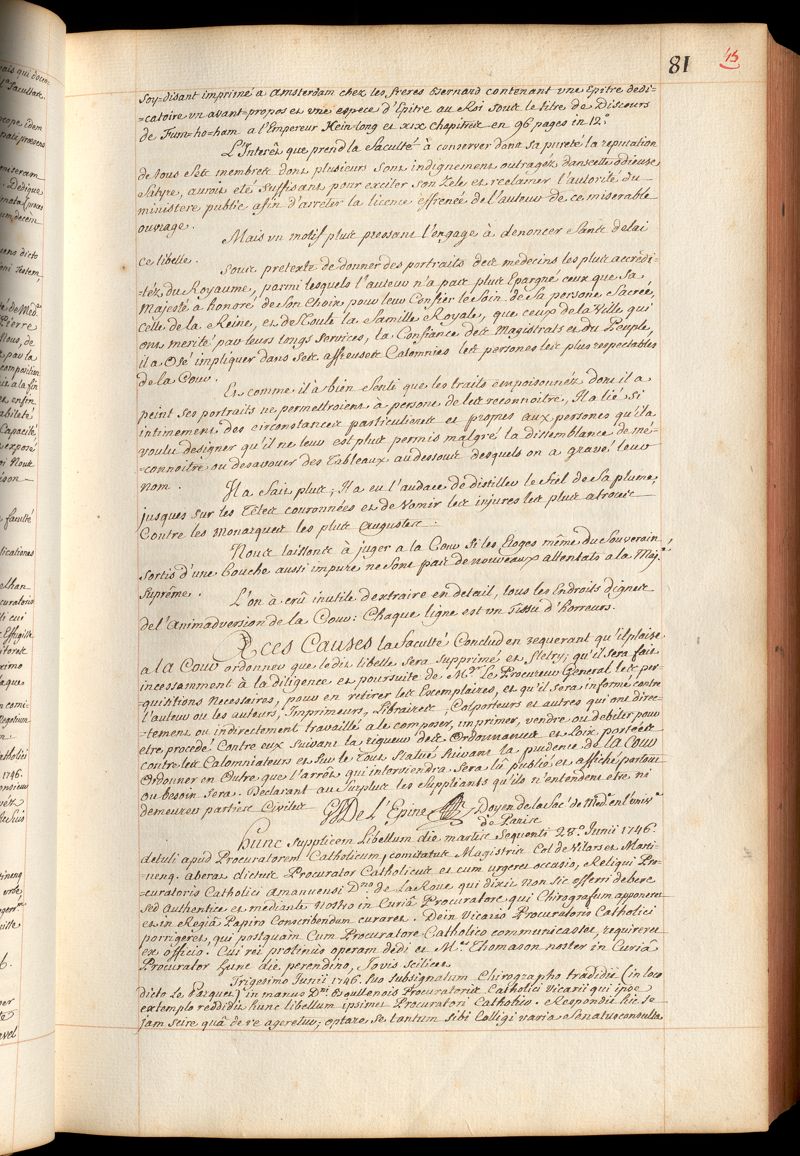 81 45
soy-disant imprimé a Amsterdam chez les freres Bernard contenant une Epitre dedi-
=catoire un avant-propos et une espece d'Epitre au Roi sous le titre de Discours
de Fum-ho-ham a l'Empereur Kein-long et XIX chapitres en 96 pages in 12°
L'Interêt que prend la faculté à conserver dans sa pureté la reputation
de tous ses membres dont plusieurs sont indignement outragez dans cette odieuse
Satyre, auroit eté suffisant pour exciter son Zele et reclamer l'autorité du
ministere public afin d'arrêter la licence effrenée de l'auteur de ce miserable
ouvrage.
Mais un motif plus pressant l'engage à denoncer sans delai
ce libelle.
Sous pretexte de donner des portraits des médecins les plus accrédi-
=tez du Royaume, parmi lesquels l'auteur n'a pas plus Epargné ceux que Sa
Majesté à honoré de son Choix pour leur Confier le soin de Sa persone Sacrée,
celle de la Reine, et de toute la famille Royale, que ceux de la Ville qui
ont merité par leurs longs services, la Confiance des Magistrats et du Peuple,
il a Osé impliquer dans ses affreuses Calomnies les persones les plus respectables
de la Cour.
Et comme il a bien senti que les traits empoisonnéz dont il a
peint ses portraits ne permettroient à persone de les reconnoitre, Il a lié si
intimement des circonstances particulieres et propres aux persones qu'il a
voulu designer qu'il ne leur est plus permis malgré la dissemblance de mé-
=connoitre ou desavouer des Tableaux au dessous desquels on a gravé leur
nom.
Il a fait plus; Il a eu l'audace de distiller le fiel de sa plume
jusques sur les Têtes couronnées et de vomir les injures les plus atroces
Contre les Monarques les plus augustes.
Nous laissons à juger a la Cour si les Eloges même du Souverain,
sortis d'une bouche aussi impure ne sont pas de nouveaux attentats a la Maj.
Suprême.
L'on à crû inutile d'extraire en detail, tous les Endroits dignes
de l'Animadversion de la Cour: Chaque ligne est un Tissu d'horreurs.
A ces Causes la faculté Conclud en requerant qu'il plaise
a la Cour ordonner que ledit libelle sera Supprimé et fletry; qu'il sera fait
incessamment à la diligence et poursuite de M.r Le Procureur General les per-
quisitions Necessaires, pour en retirer les Exemplaires, et qu'il sera informé contre
l'auteur ou les auteurs, Imprimeurs, Libraires, Colporteurs et autres qui ont direc-
=tement ou indirectement travaillé a le composer, imprimer, vendre ou debiter pour
etre procedé Contre eux suivant la rigueur des Ordonnances et Loix portées
contre les Calomniateurs et sur le Tout statué suivant la prudence de la Cour
Ordonner en Outre que l'arrêt qui interviendra sera lû publié et affiché partout
ou besoin sera. Declarant au Surplus les suppliants qu'ils n'entendent etre ni
demeurer parties Civiles G J De L'Epine Doyen de la fac. de Med. en l'univ.
de Paris
Hunc supplicem Libellum die martis sequenti 28.a Junii 1746.
detuli apud Procuratorem Catholicum, comitatus Magistris Col de Vilars et Marti-
nenq. aberat dictus Procurator Catholicus et cum urgeret occasio, Reliqui Pro-
curatoris Catholici amanuensi D.no de La Roue qui dixit non sic offerri debere
sed Authentice et mediante nostro in Curiâ Procuratore qui Chirografum apponeret
et in Regiâ Papiro Conscribendum curaret. Dein Vicario Procuratoris Catholici
porrigeret, qui postquam Cum Procuratore Catholico communicasset, requireret
ex officio. Cui rei protinus operam dedi et M.r Thomason noster in Curiâ
Procurator hunc die perendino, Jovis scilicet
Trigesimo Junii 1746. suo subsignatum Chirographo tradidit (in loco
dicto Le Parquet) in manus D.ni Boullenois Procuratoris Catholici Vicarii qui inde
extemplo reddidit hunc libellum ipsimet Procuratori Catholico. Respondit hic se
jam scire quâ de re ageretur; optare se tantum sibi Colligi varia Senatusconsulta